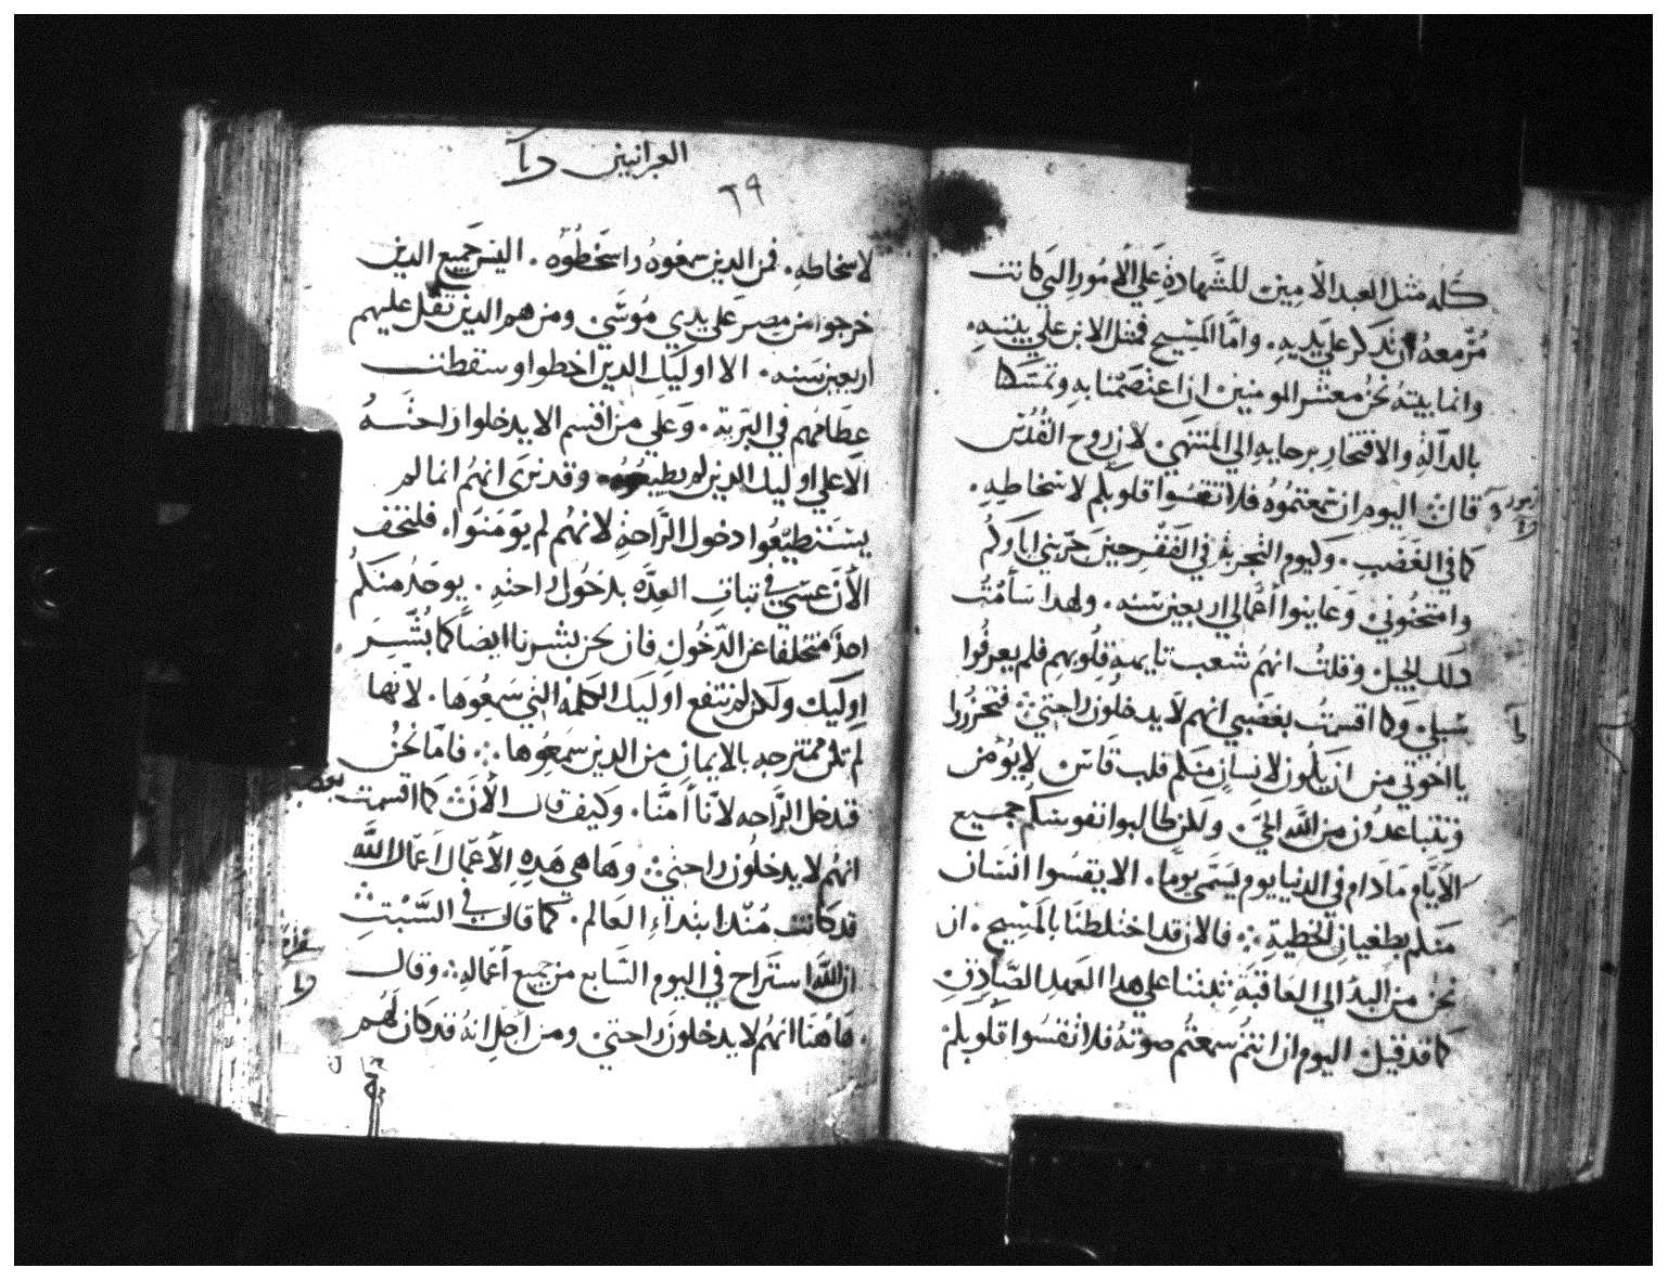 كله مثل العبد الامين للشَّهادةِ عَلي الأمُورِ التي كانت
مُزمعهُ ان تدكر علي يَديهِ. وامَّا المَسِّيح فمثل الابن علي بيتهِ.
وانما بيتهُ نحنُ معشر المومنين ان اعتصَمنا به وتمسَّكنا
بالدالّةِ والافتخارِ برجايهِ الي المُنتهَي. لان روح القُدُس
قالت اليوم ان سَمعتمُوهُ فلا تقسُوا قلوبكم لاسخاطهِ.
كما في الغَضَبِ. وكيوم التجربةِ في القَفْرِ حينَ جَرّبني اباوكُم
وامتحنُوني وَعَاينوا أعمالي اربعين سَنه. ولهدا سَأمْتُ
دلك الجيل وقلتُ انهمُ شعب تايهه قلُوبهم فلم يعرفُوا
سُبلي. وكما اقسمتُ بغضبي انهم لا يدخلون راحتي فتحرزوا
يا اخوتي من ان يكُون لانسان منكم قلب قاسٍ لا يُومن
وتتباعدُون من اللَّه الحيِّ. ولكن طالبوا نفوسكم جميع
الأيَّام مَادَام في الدنيا يوم يُسَمَّي يومًا. الا يقسُوا انسَان
منكم بطغيان الخطيةِ. فالان قد اختلطنَا بالمَسِيح. ان
نحن من البدُ الي العَاقبَةِ ثبتنا علي هدا العَهدِ الصَّادِقِ
كما قد قيل. اليوم ان انتمُ سمعتُم صوتهُ فلا تقسُوا قلوبكم
زبور
العبرانيين
٦٩
لاسخاطهِ. فمن الدين سمعُوهُ واسخَطُوُه. اليسَ جَميع الدين
خرجوا من مِصرَ علي يدي مُوسَّي. ومن هم الدين ثقل عليهم
اربعين سَنه. الا اوليَك الدين اخطوا وسقطت
عِظَامُهم في البَرية. وَعَلي من اقسم الا يدخلوا راحتَهُ
الا علي اوليك الدين لم يطيعُوه. وقد نرَي انهمُ انما لم
يسَتطيعُوا دخول الرَّاحةِ لانهُم لم يوَمَنوُا. فلنخف
الأن عسَي في ثبات العِدَّه بدخُول راحتهِ. يوجَدُ منكمُ
احدٌ متخلفًا عن الدّخُولِ فان نحن بشرنا ايضًا كما بُشّرِ
اوليَك ولكن لم تنتفع اوليَك الكلمةُ التي سَمعُوهَا. لأنّها
لم تكن ممتزجه بالايمانِ من الدين سمَعِوُها. فامّا نحنُ
فندخل الرَّاحه لأنا أمنَّا. وكيف قال الأن كما اقسمت بغضبي
انهُم لا يدخلُون راحتي. وهَا هي هَدِهِ الأعمَال اعَمال اللَّه
قد كانت مُنْد ابتداءِ العَالم. كما قال في السَّبْتِ
ان اللَّه استَراح في اليوم السَّابع من جميع أعمالهِ. وقال
هَاهُنَا انهُم لا يدخلون راحتي. ومن أجلِ انهُ قد كان لَهُم